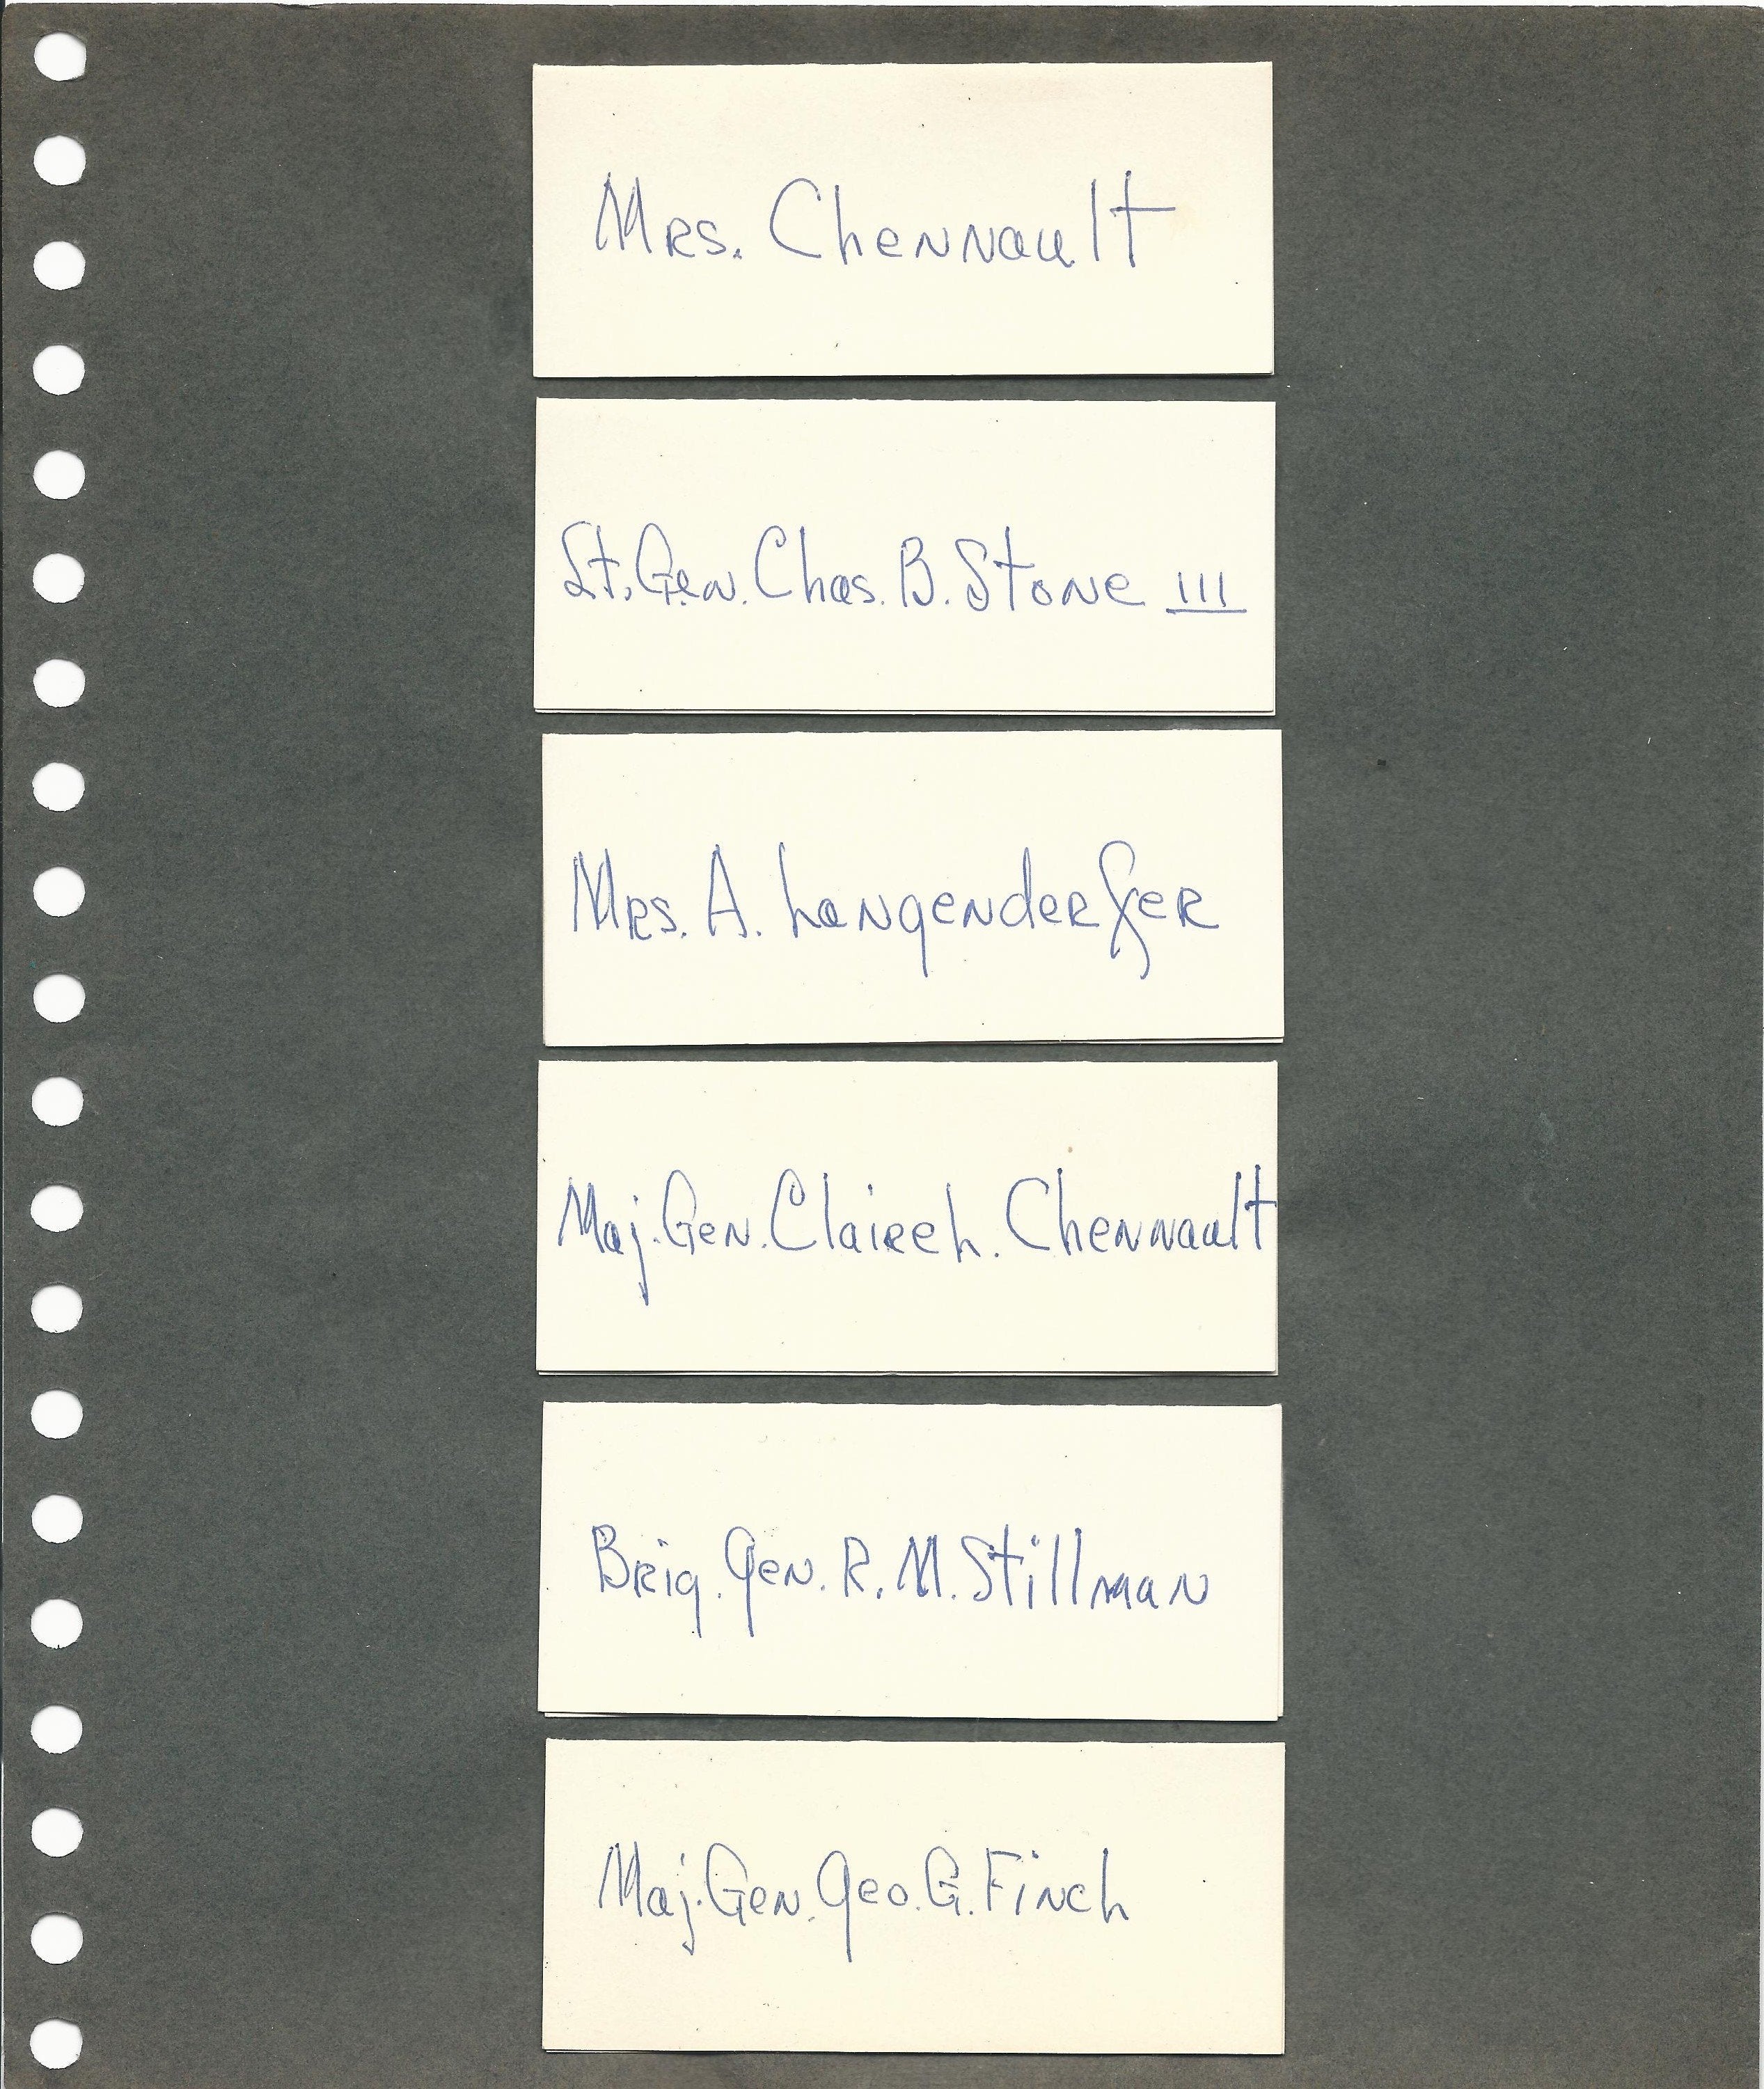 Mrs. Chennault
Lt. Gen. Chas. B. Stone III
Mrs. A. Langenderfer
Maj. Gen. Claire L. Chennault
Brig. Gen. R. M. Stillman
Maj. Gen. Geo. G. Finch